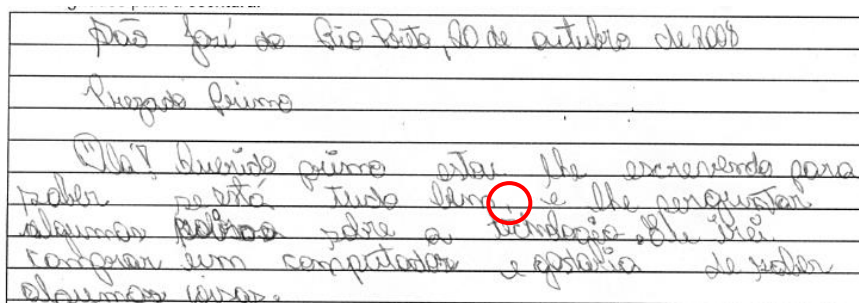 São José do Rio Preto, 20 de outubro de 2008
Prezado Primo
Olá! Querido primo estou lhe escrevendo para
saber se está tudo bem, e lhe perguntar
algumas sobre a tecnologia. Ele irei
comprar um computador e gostaria de saber
algumas coisas.